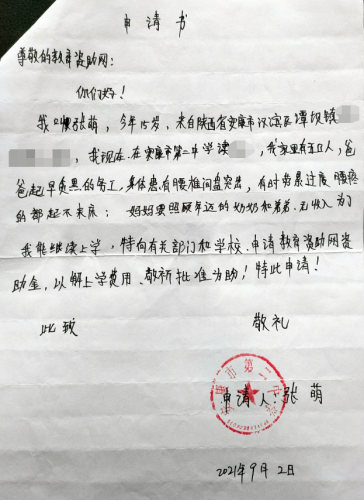 申请书
尊敬的教育资助网:
你们好!
我叫张萌,今年15岁,来自陕西省安康市汉滨区谭坝镇
,我现在在安康市第二中学读 ,我家里有五口人,爸
爸起早贪黑的务工,身体患有腰椎间盘突出,有时劳累过度腰疼
的都起不来床;妈妈要照顾年迈的奶奶和弟弟,无收入为
我能继续上学,特向有关部门和学校、申请教育资助网资
助金,以解上学费用、敬祈批准为助!特此申请!
此致 敬礼
市第二中学
申请人:张萌
2021年9月2日